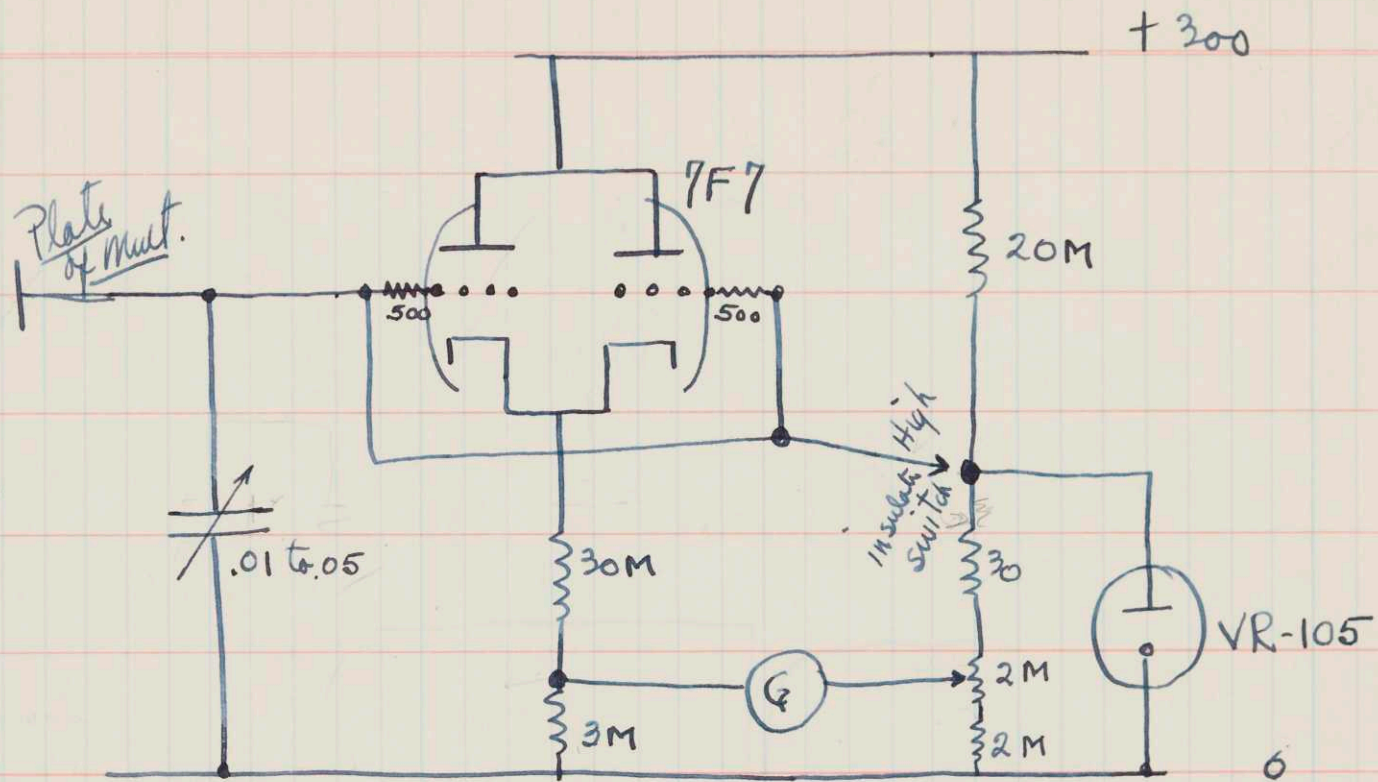 + 300
Plate
of Mult.
7F7
20M
500
500
Insulate High
Switch
.01 to .05
30M
30
G
2M
VR-105
3M
2M
0